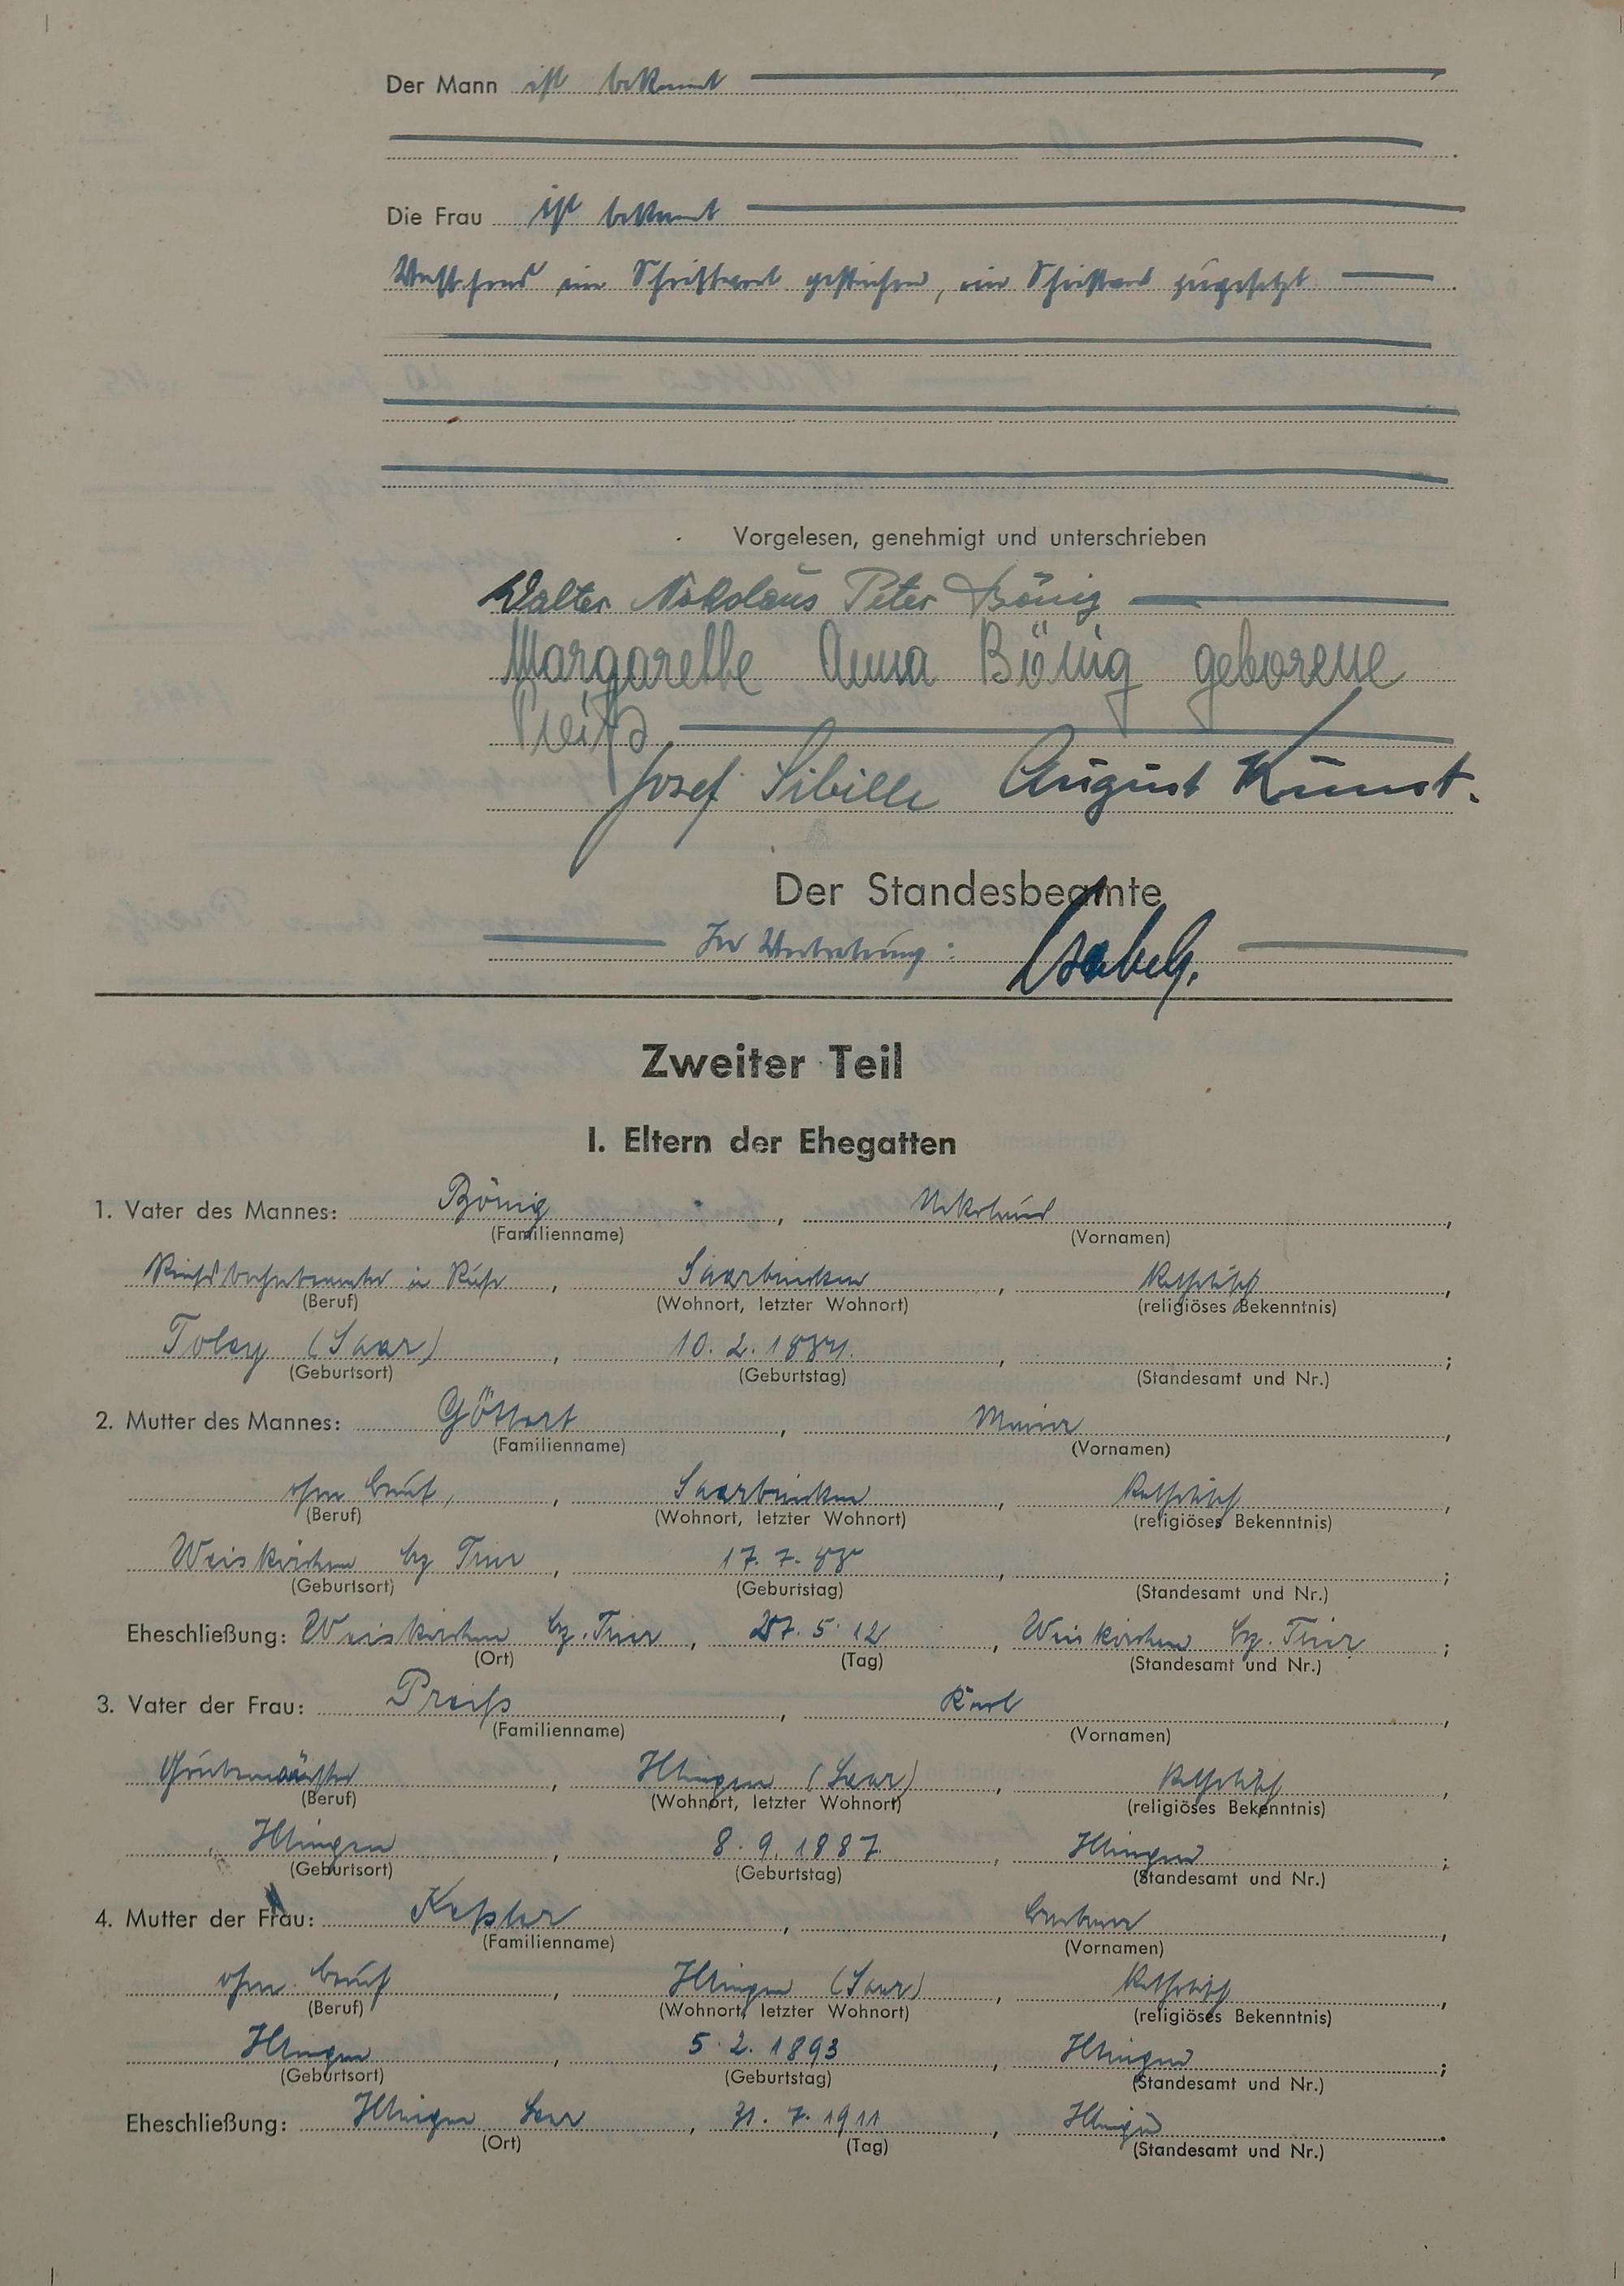 Der Mann ist bekannt
Die Frau ist bekannt
Vorstehend ein Schriftwort gestrichen, ein Schriftwort zugesetzt
Vorgelesen, genehmigt und unterschrieben
Walter Nikolaus Peter Bönig
Margarethe Anna Bönig geborene
Preiß
Josef Sibille August Kunst.
Der Standesbeamte
In Vertretung:
Zweiter Teil
I. Eltern der Ehegatten
1. Vater des Mannes: Bönig, Nikolaus,
(Familienname) (Vornamen)
Reichsbahnbeamter i. Ruhe, Saarbrücken, katholisch,
(Beruf) (Wohnort, letzter Wohnort) (religiöses Bekenntnis)
Toley (Saar), 10. 2. , ;
(Geburtsort) (Geburtstag) (Standesamt und Nr.)
2. Mutter des Mannes: Göttert, Maria,
(Familienname) (Vornamen)
ohne Beruf, , Saarbrücken, katholisch,
(Beruf) (Wohnort, letzter Wohnort) (religiöses Bekenntnis)
Weiskirchen bz Trier, 17. 7. , ;
(Geburtsort) (Geburtstag) (Standesamt und Nr.)
Eheschließung: Weiskirchen bz. Trier, 27. 5. 12, Weiskirchen bz. Trier;
(Ort) (Tag) (Standesamt und Nr.)
3. Vater der Frau: Preiß, Karl,
(Familienname) (Vornamen)
, Illingen (Saar), katholisch,
(Beruf) (Wohnort, letzter Wohnort) (religiöses Bekenntnis)
Illingen, 8. 9. 1887, Illingen;
(Geburtsort) (Geburtstag) (Standesamt und Nr.)
4. Mutter der Frau: Keßler, Barbara,
(Familienname) (Vornamen)
ohne Beruf, Illingen (Saar), katholisch,
(Beruf) (Wohnort, letzter Wohnort) (religiöses Bekenntnis)
Illingen, 5. 2. 1893, Illingen;
(Geburtsort) (Geburtstag) (Standesamt und Nr.)
Eheschließung: Illingen Saar, 31. 7. 1911, Illingen.
(Ort) (Tag) (Standesamt und Nr.)